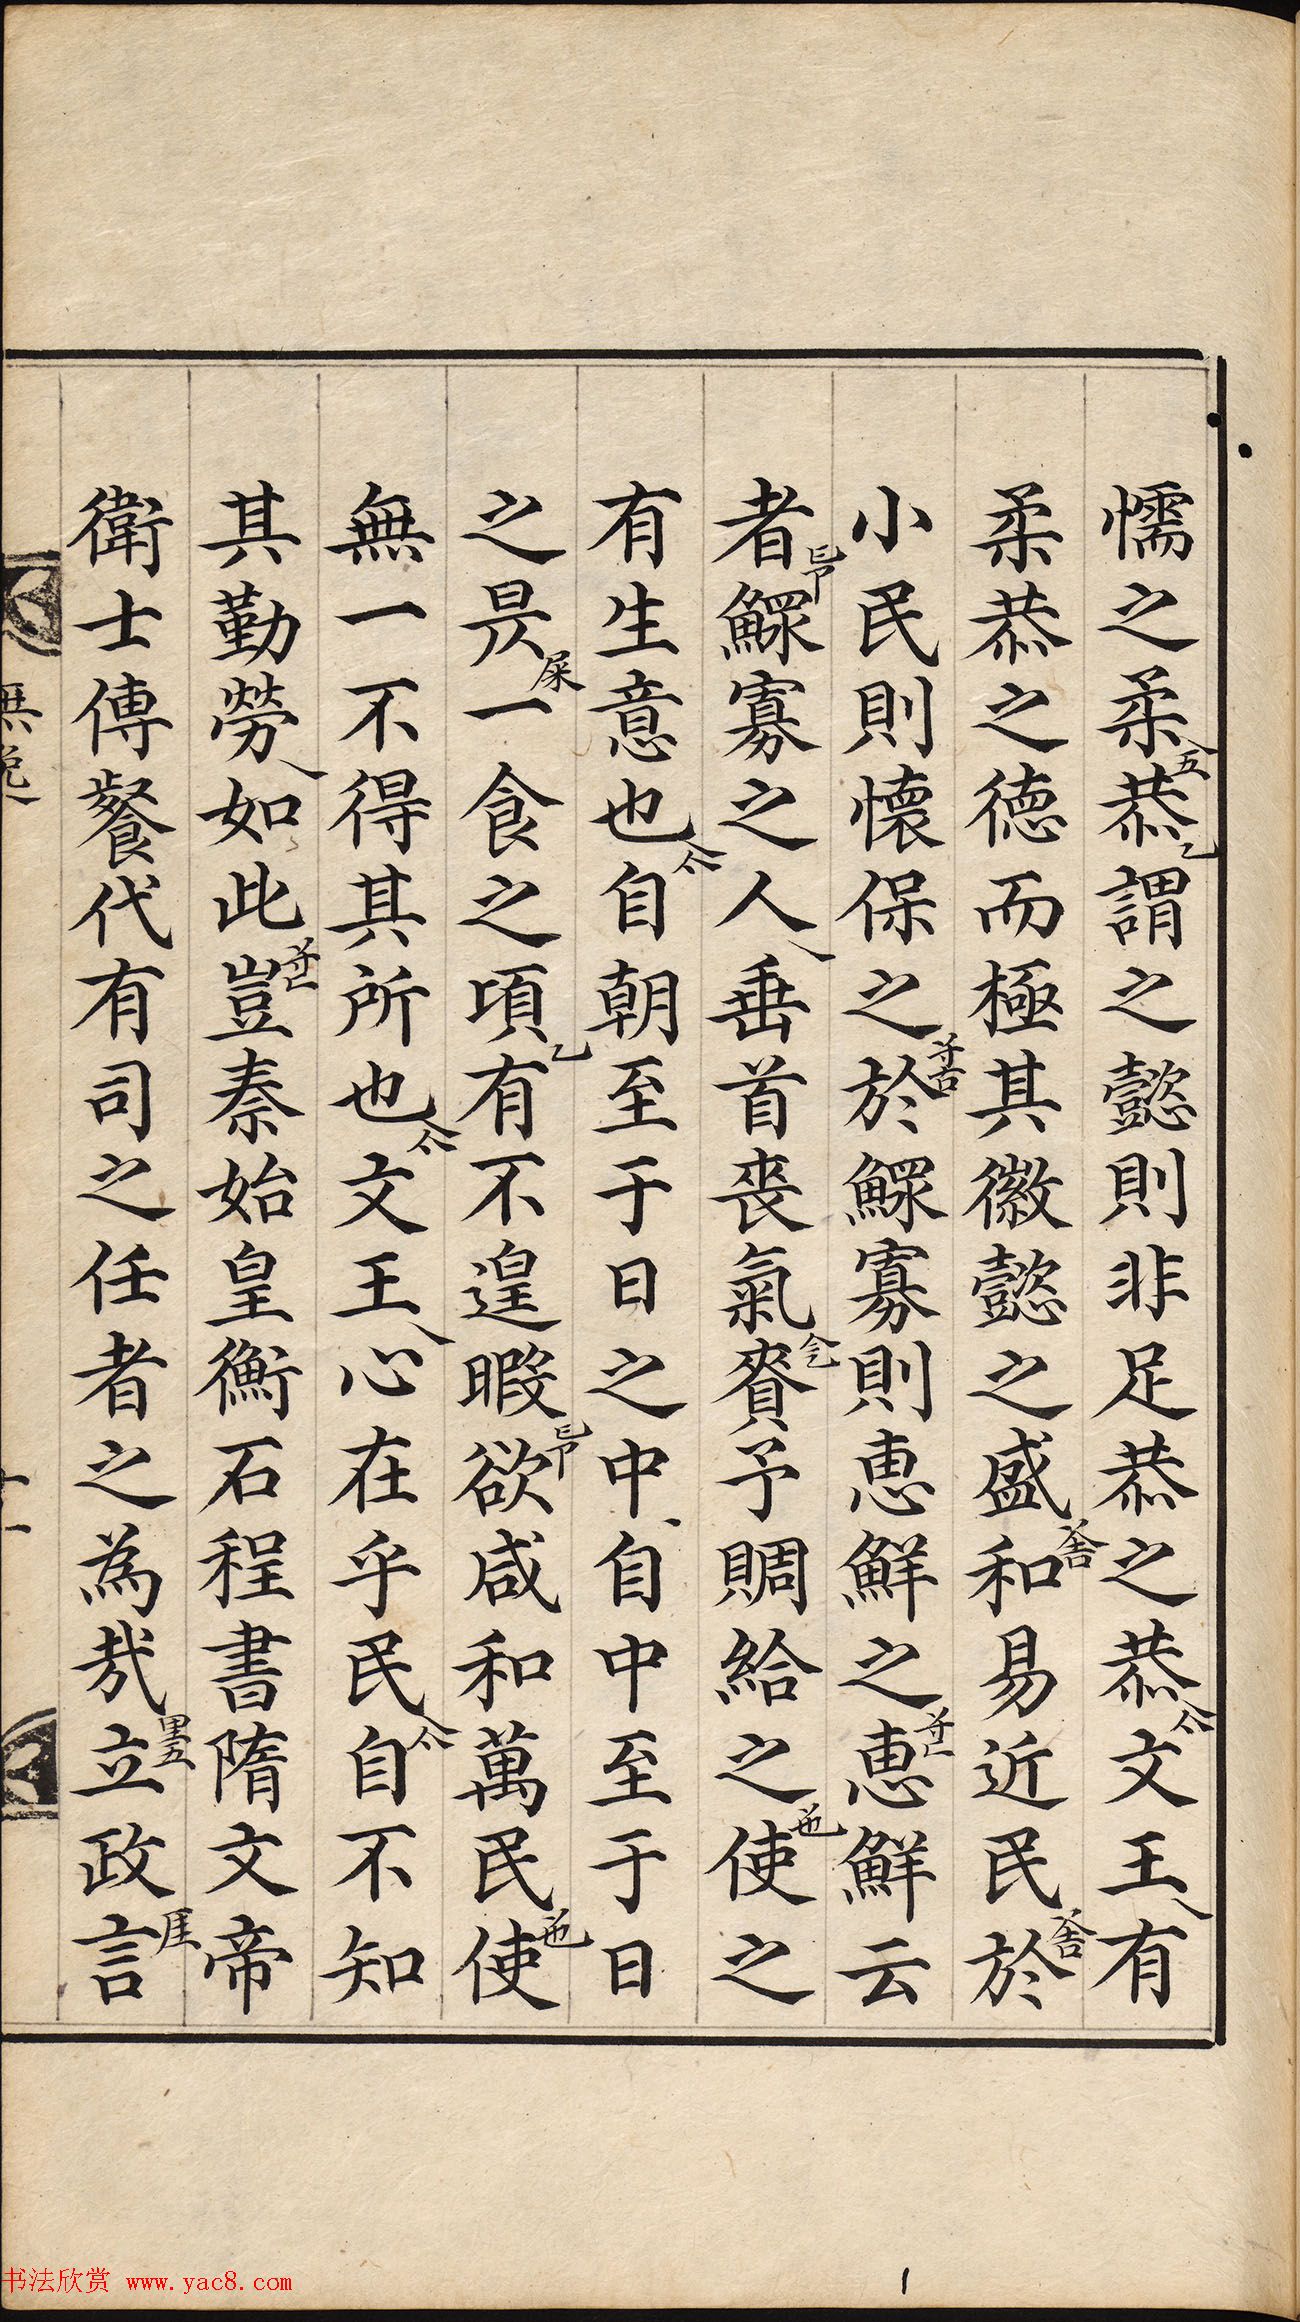 懦之柔恭謂之懿則非足恭之恭文王有
柔恭之德而極其徽懿之盛和易近民於
小民則懷保之於鰥寡則惠鮮之惠鮮云
者鰥寡之人垂首喪氣賚予賙給之使之
有生意也自朝至于日之中自中至于日
之昃一食之頃有不遑暇欲咸和萬民使
無一不得其所也文王心在乎民自不知
其勤勞如此豈秦始皇衡石程書隋文帝
衛士傳餐代有司之任者之為哉立政言
無逸
十一
书法欣赏 www.yac8.com